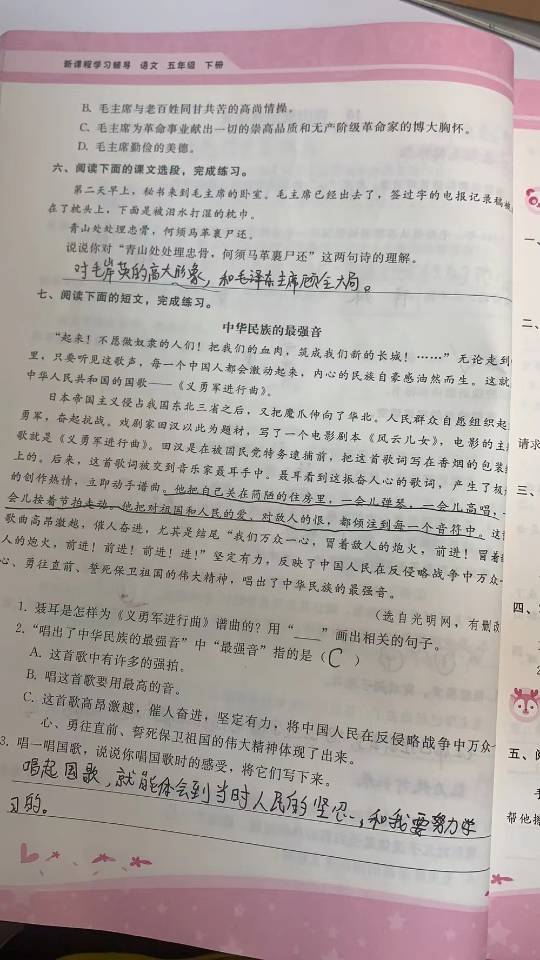 新课程学习辅导 语文 五年级 下册
B. 毛主席与老百姓同甘共苦的高尚情操。
C. 毛主席为革命事业献出一切的崇高品质和无产阶级革命家的博大胸怀。
D. 毛主席勤俭的美德。
六、阅读下面的课文选段，完成练习。
第二天早上，秘书来到毛主席的卧室。毛主席已经出去了，签过字的电报记录稿被
在了枕头上，下面是被泪水打湿的枕巾。
青山处处埋忠骨，何须马革裹尸还。
说说你对“青山处处埋忠骨，何须马革裹尸还”这两句诗的理解。
对毛岸英的高大形象，和毛泽东主席顾全大局。
七、阅读下面的短文，完成练习。
中华民族的最强音
“起来！不愿做奴隶的人们！把我们的血肉，筑成我们新的长城！……”无论走到
里，只要听见这歌声，每一个中国人都会激动起来，内心的民族自豪感油然而生。这就
中华人民共和国的国歌——《义勇军进行曲》。
日本帝国主义侵占我国东北三省之后，又把魔爪伸向了华北。人民群众自愿组织起
勇军，奋起抗战。戏剧家田汉以此为题材，写了一个电影剧本《风云儿女》，电影的主
歌就是《义勇军进行曲》。田汉是在被国民党特务逮捕前，把这首歌词写在香烟的包装
上的。后来，这首歌词被交到音乐家聂耳手中。聂耳看到这振奋人心的歌词，产生了极
的创作热情，立即动手谱曲。他把自己关在简陋的住房里，一会儿弹琴，一会儿高唱，
会儿按着节拍走动。他把对祖国和人民的爱、对敌人的恨，都倾注到每一个音符中。这
歌曲高昂激越，催人奋进，尤其是结尾“我们万众一心，冒着敌人的炮火，前进！冒着
人的炮火，前进！前进！前进！进！”坚定有力，反映了中国人民在反侵略战争中万众
心、勇往直前、誓死保卫祖国的伟大精神，唱出了中华民族的最强音。
（选自光明网，有删改
1. 聂耳是怎样为《义勇军进行曲》谱曲的？用“____”画出相关的句子。
2. “唱出了中华民族的最强音”中“最强音”指的是（ C ）
A. 这首歌中有许多的强拍。
B. 唱这首歌要用最高的音。
C. 这首歌高昂激越，催人奋进，坚定有力，将中国人民在反侵略战争中万众
心、勇往直前、誓死保卫祖国的伟大精神体现了出来。
3. 唱一唱国歌，说说你唱国歌时的感受，将它们写下来。
唱起国歌，就能体会到当时人民的坚忍，和我要努力学
习的。
一、
二、
请求
三、
四、
五、
帮他